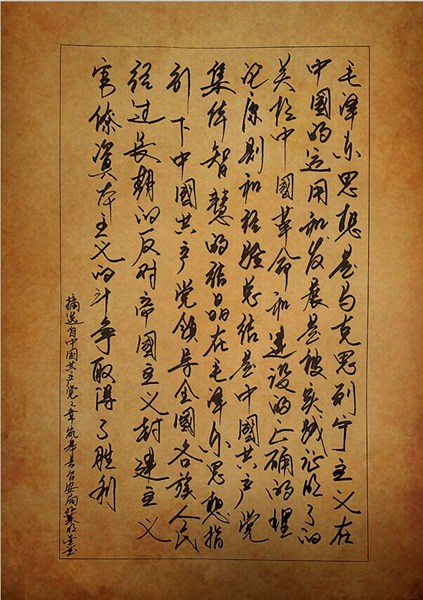 毛泽东思想是马克思列宁主义在
中國的运用和发展是被实践证明了的
关于中國革命和建设的正确的理
论原则和经验总结是中國共产党
集体智慧的结晶在毛泽东思想指
引下中國共产党领导全國各族人民
经过长期的反对帝國主义封建主义
官僚资本主义的斗争取得了胜利
摘选自中国共产党之章